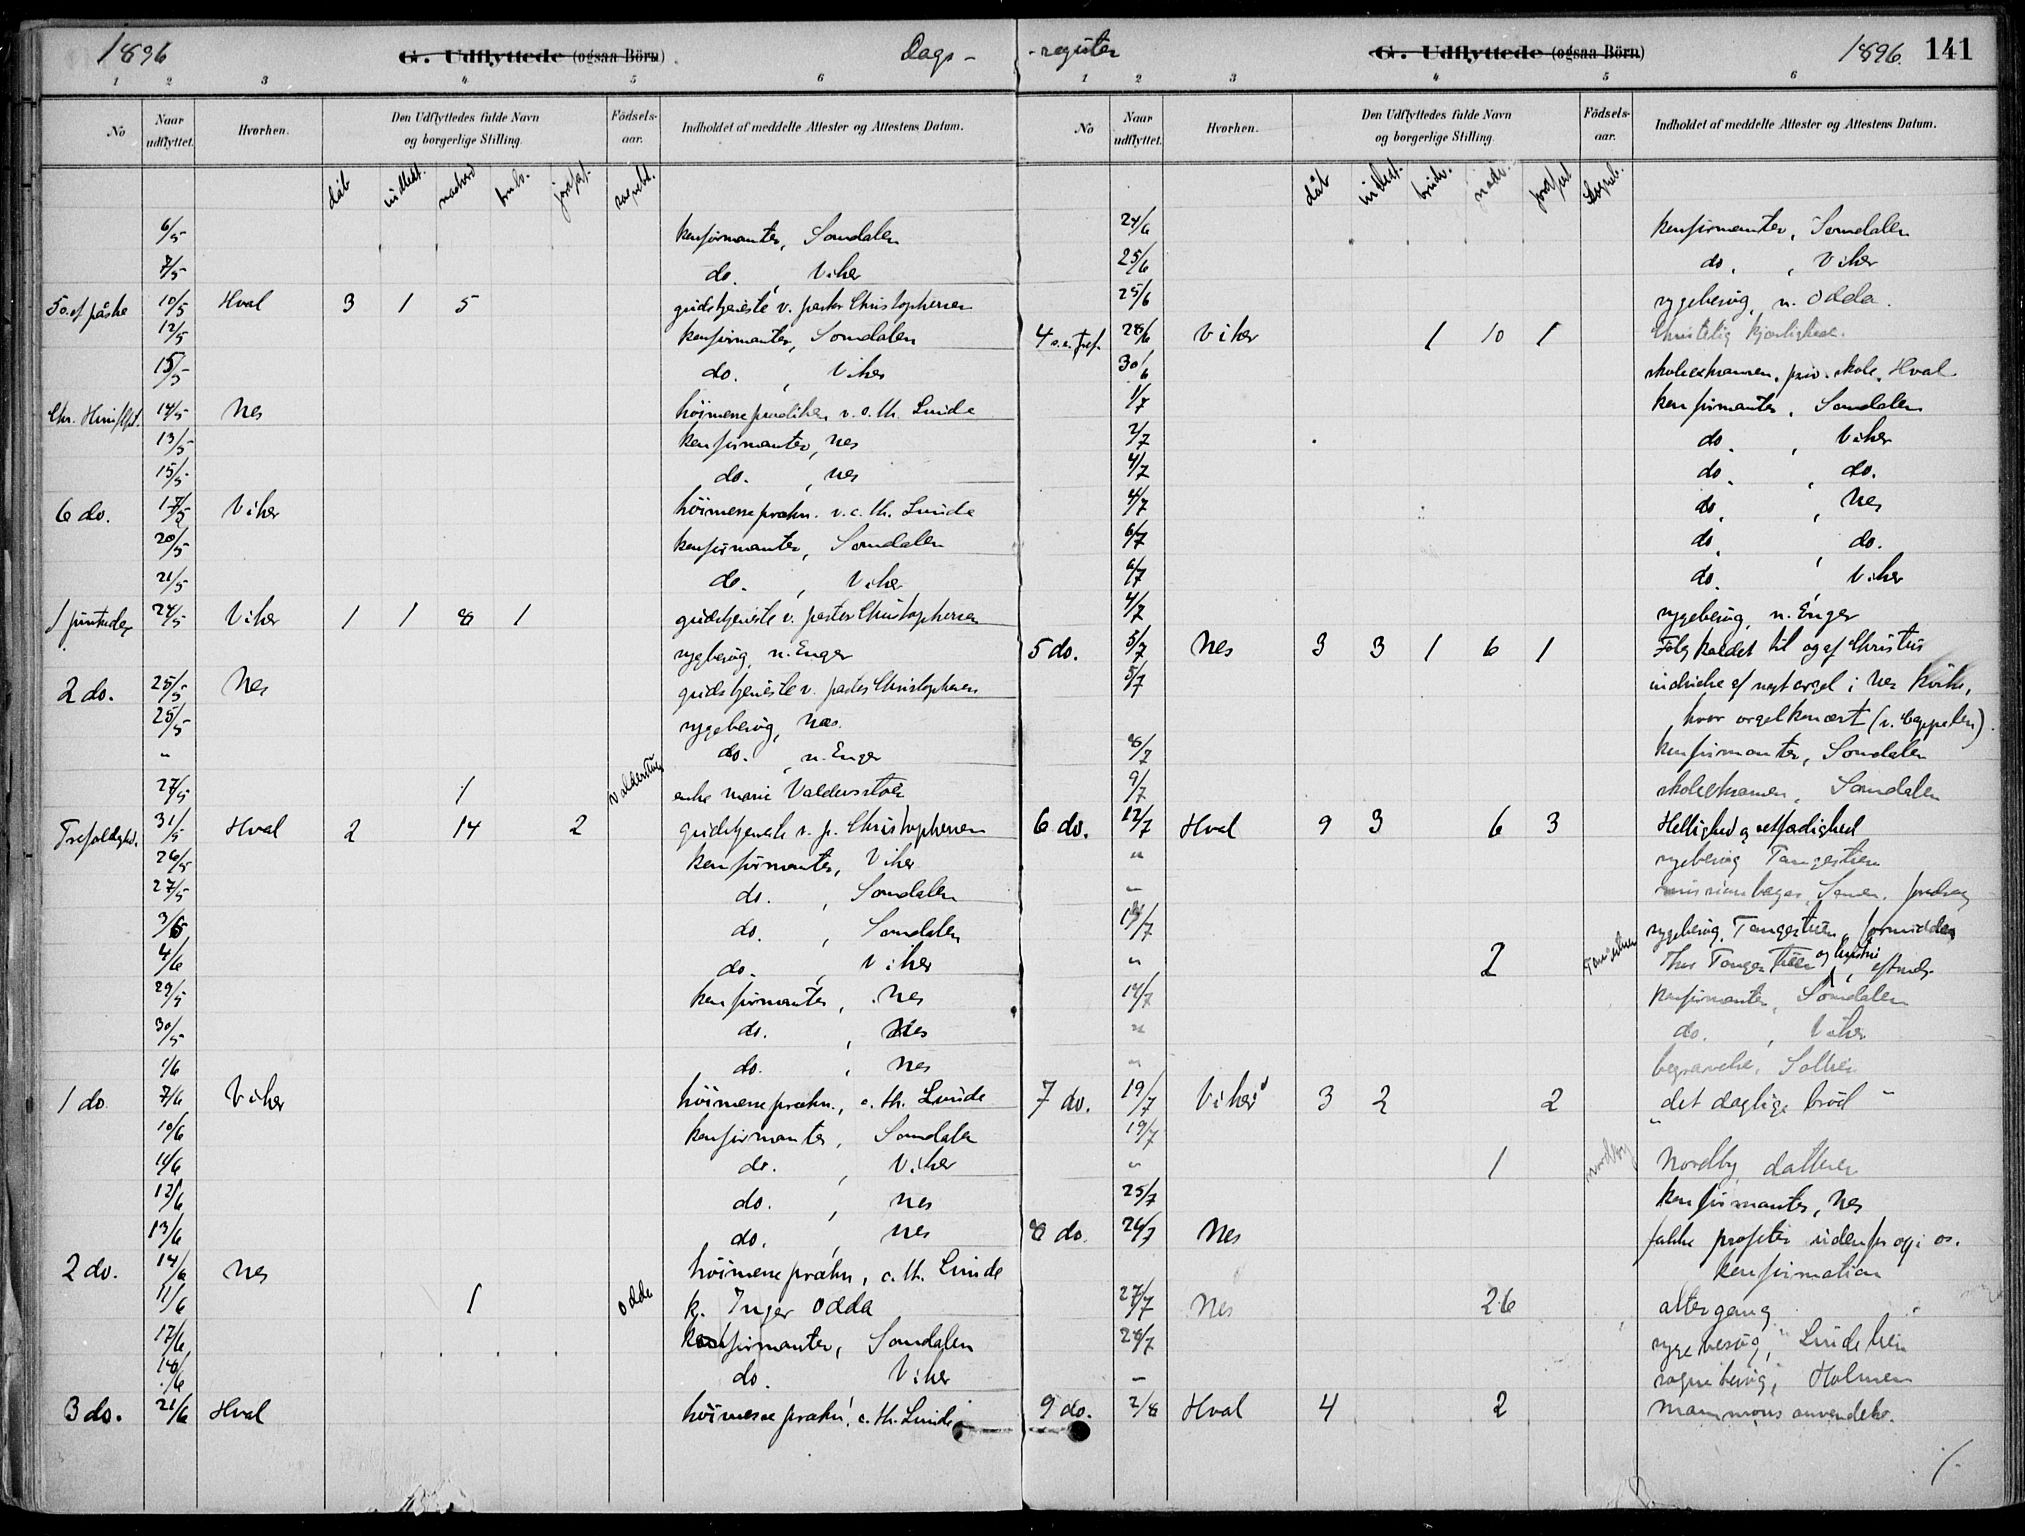 1896 G. Udflyttede (ogsaa Börn) Dags-
1 2 3 4 5 6
No Naar udflyttet. Hvorhen. Den Udflyttedes fulde Navn og borgerlige Stilling. Födsels-aar. Indholdet af meddelte Attester og Attestens Datum.
dåb indled. nadverd
6/5 konfirmanter, Somdalen
7/5 do. , Viker
5 s. ef påske 10/5 Hval 3 1 5 gudstjeneste v. pastor Christophersen
12/5 konfirmanter, Somdalen
15/5 do. , Viker
Chr. Himlfart. 14/5 Nes höimessepræken v. c. th. Lunde
13/5 konfirmanter, Nes
15/5 do. , Nes
6 do. 17/5 Viker höimessepræken. v. c. th. Lunde
20/5 konfirmanter, Somdalen
21/5 do. , Viker
1 pintsedag 24/5 Viker 1 1 8 1 gudstjeneste v. pastor Christophersen
sygebesög, n. Enger
2 do. 25/5 Nes gudstjeneste v. pastor Christophersen
25/5 sygebesög, Nes.
" do. , n. Enger
27/5 1 Valdersstuen enke Marie Valdersstuen
Trefoldighed. 31/5 Hval 2 14 2 gudstjeneste v. p. Christophersen
26/5 konfirmanter, Viker
27/5 do. , Somdalen
3/6 do. , Somdalen
4/6 do. , Viker
29/5 konfirmanter, Nes
30/5 do. , Nes
1/6 do. , Nes
1 do 7/6 Viker höimessepræken., c. th. Lunde
10/6 konfirmanter, Somdalen
11/6 do. , Viker
12/6 do. , Nes
13/6 do. , Nes
2 do. 14/6 Nes höimessepræken, c. th. Lunde
11/6 1 Odda k. Inger Odda
17/6 konfirmanter, Somdalen
18/6 do. Viker
3 do. 21/6 Hval höimessepræken, c. th. Lunde
-register G. Udflyttede (ogsaa Börn) 1896. 141
1 2 3 4 5 6
No Naar udflyttet. Hvorhen. Den Udflyttedes fulde Navn og borgerlige Stilling. Födsels-aar. Indholdet af meddelte Attester og Attestens Datum.
dåb indled. brudv. nadv.
24/6 konfirmanter, Somdalen
25/6 do. , Viker
25/6 sygebesög, n. Odda.
4 s. e. tref. 28/6 Viker 1 10 1 Christelig kjærlighed.
30/6 skoleeksamen, priv. skole, Hval
1/7 konfirmanter, Somdalen
2/7 do. , Viker
4/7 do. , do.
4/7 do. , Nes
6/7 do. , do.
6/7 do. , Viker
4/7 sygebesög, n. Enger
5 do. 5/7 Nes 3 3 1 6 1 Fölg kaldet til og af Christus
5/7 indvielse af nyt orgel i Nes kirke,
hvor orgelkoncert (v. Cappelen).
8/7 konfirmanter, Somdalen
9/7 skoleeksamen, Somdalen
6 do. 12/7 Hval 9 3 6 3 Hellighed og retfærdighed
" sygebesög Tangestuen
"
13/7 sygebesög, Tangestuen, formiddag
" 2 Tangestuen Thor Tangestuen og hustru, eftmdg.
14/7 konfirmanter, Somdalen
" do. , Viker
" begravelse,
7 do. 19/7 Viker 3 2 2 "det daglige bröd"
19/7
" 1 Nordby Nordby datteren
25/7 konfirmanter, Nes
8 do. 26/7 Nes falske profeter udenfor og i os.
konfirmation
27/7 Nes 26 altergang
28/7 sygebesög, Lindelien
" sognebesög, Holmen
9 do. 2/8 Hval 4 2 Mammons anvendelse.